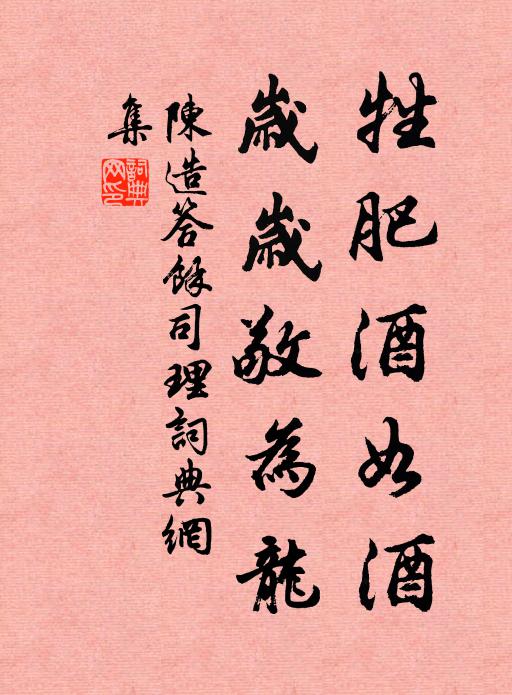 牲肥酒如酒
歲歲敬為龍
陳造答餘司理詞典網
集
詞典
網印